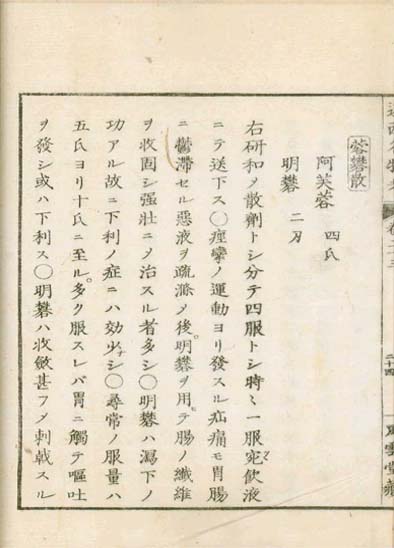 遠西名物考
卷二十三
二十四
風雲堂藏
蓉礬散
阿芙蓉 四氏
明礬 二刃
右研和メ散劑トシ分テ四服トシ時々一服宛飲液
ニテ送下ス〇痙攣ノ運動ヨリ發スル疝痛モ胃腸
ニ鬱滯セル惡液ヲ疏滌メ後。明礬ヲ用。テ腸ノ纖維
ヲ收固シ强壯ニメ治スル者多シ〇明礬ハ瀉下ノ
功アル故ニ下利ノ症ニハ効少ナシ〇尋常ノ服量ハ
五氏ヨリ十氏ニ至ル。多ク服スレバ胃ニ觸テ嘔吐
ヲ發シ或ハ下利ス〇明礬ハ收斂甚フメ刺戟スル